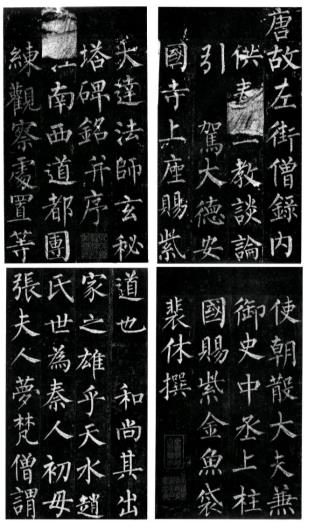 唐故左街僧錄內
供教談論
引 駕大德安
國寺上座賜紫
大達法師玄秘
塔碑銘并序
江南西道都團
練觀察處置等
使朝散大夫兼
御史中丞上柱
國賜紫金魚袋
裴休撰
道也 和尚其出
家之雄乎天水趙
氏世為秦人初母
張夫人夢梵僧謂